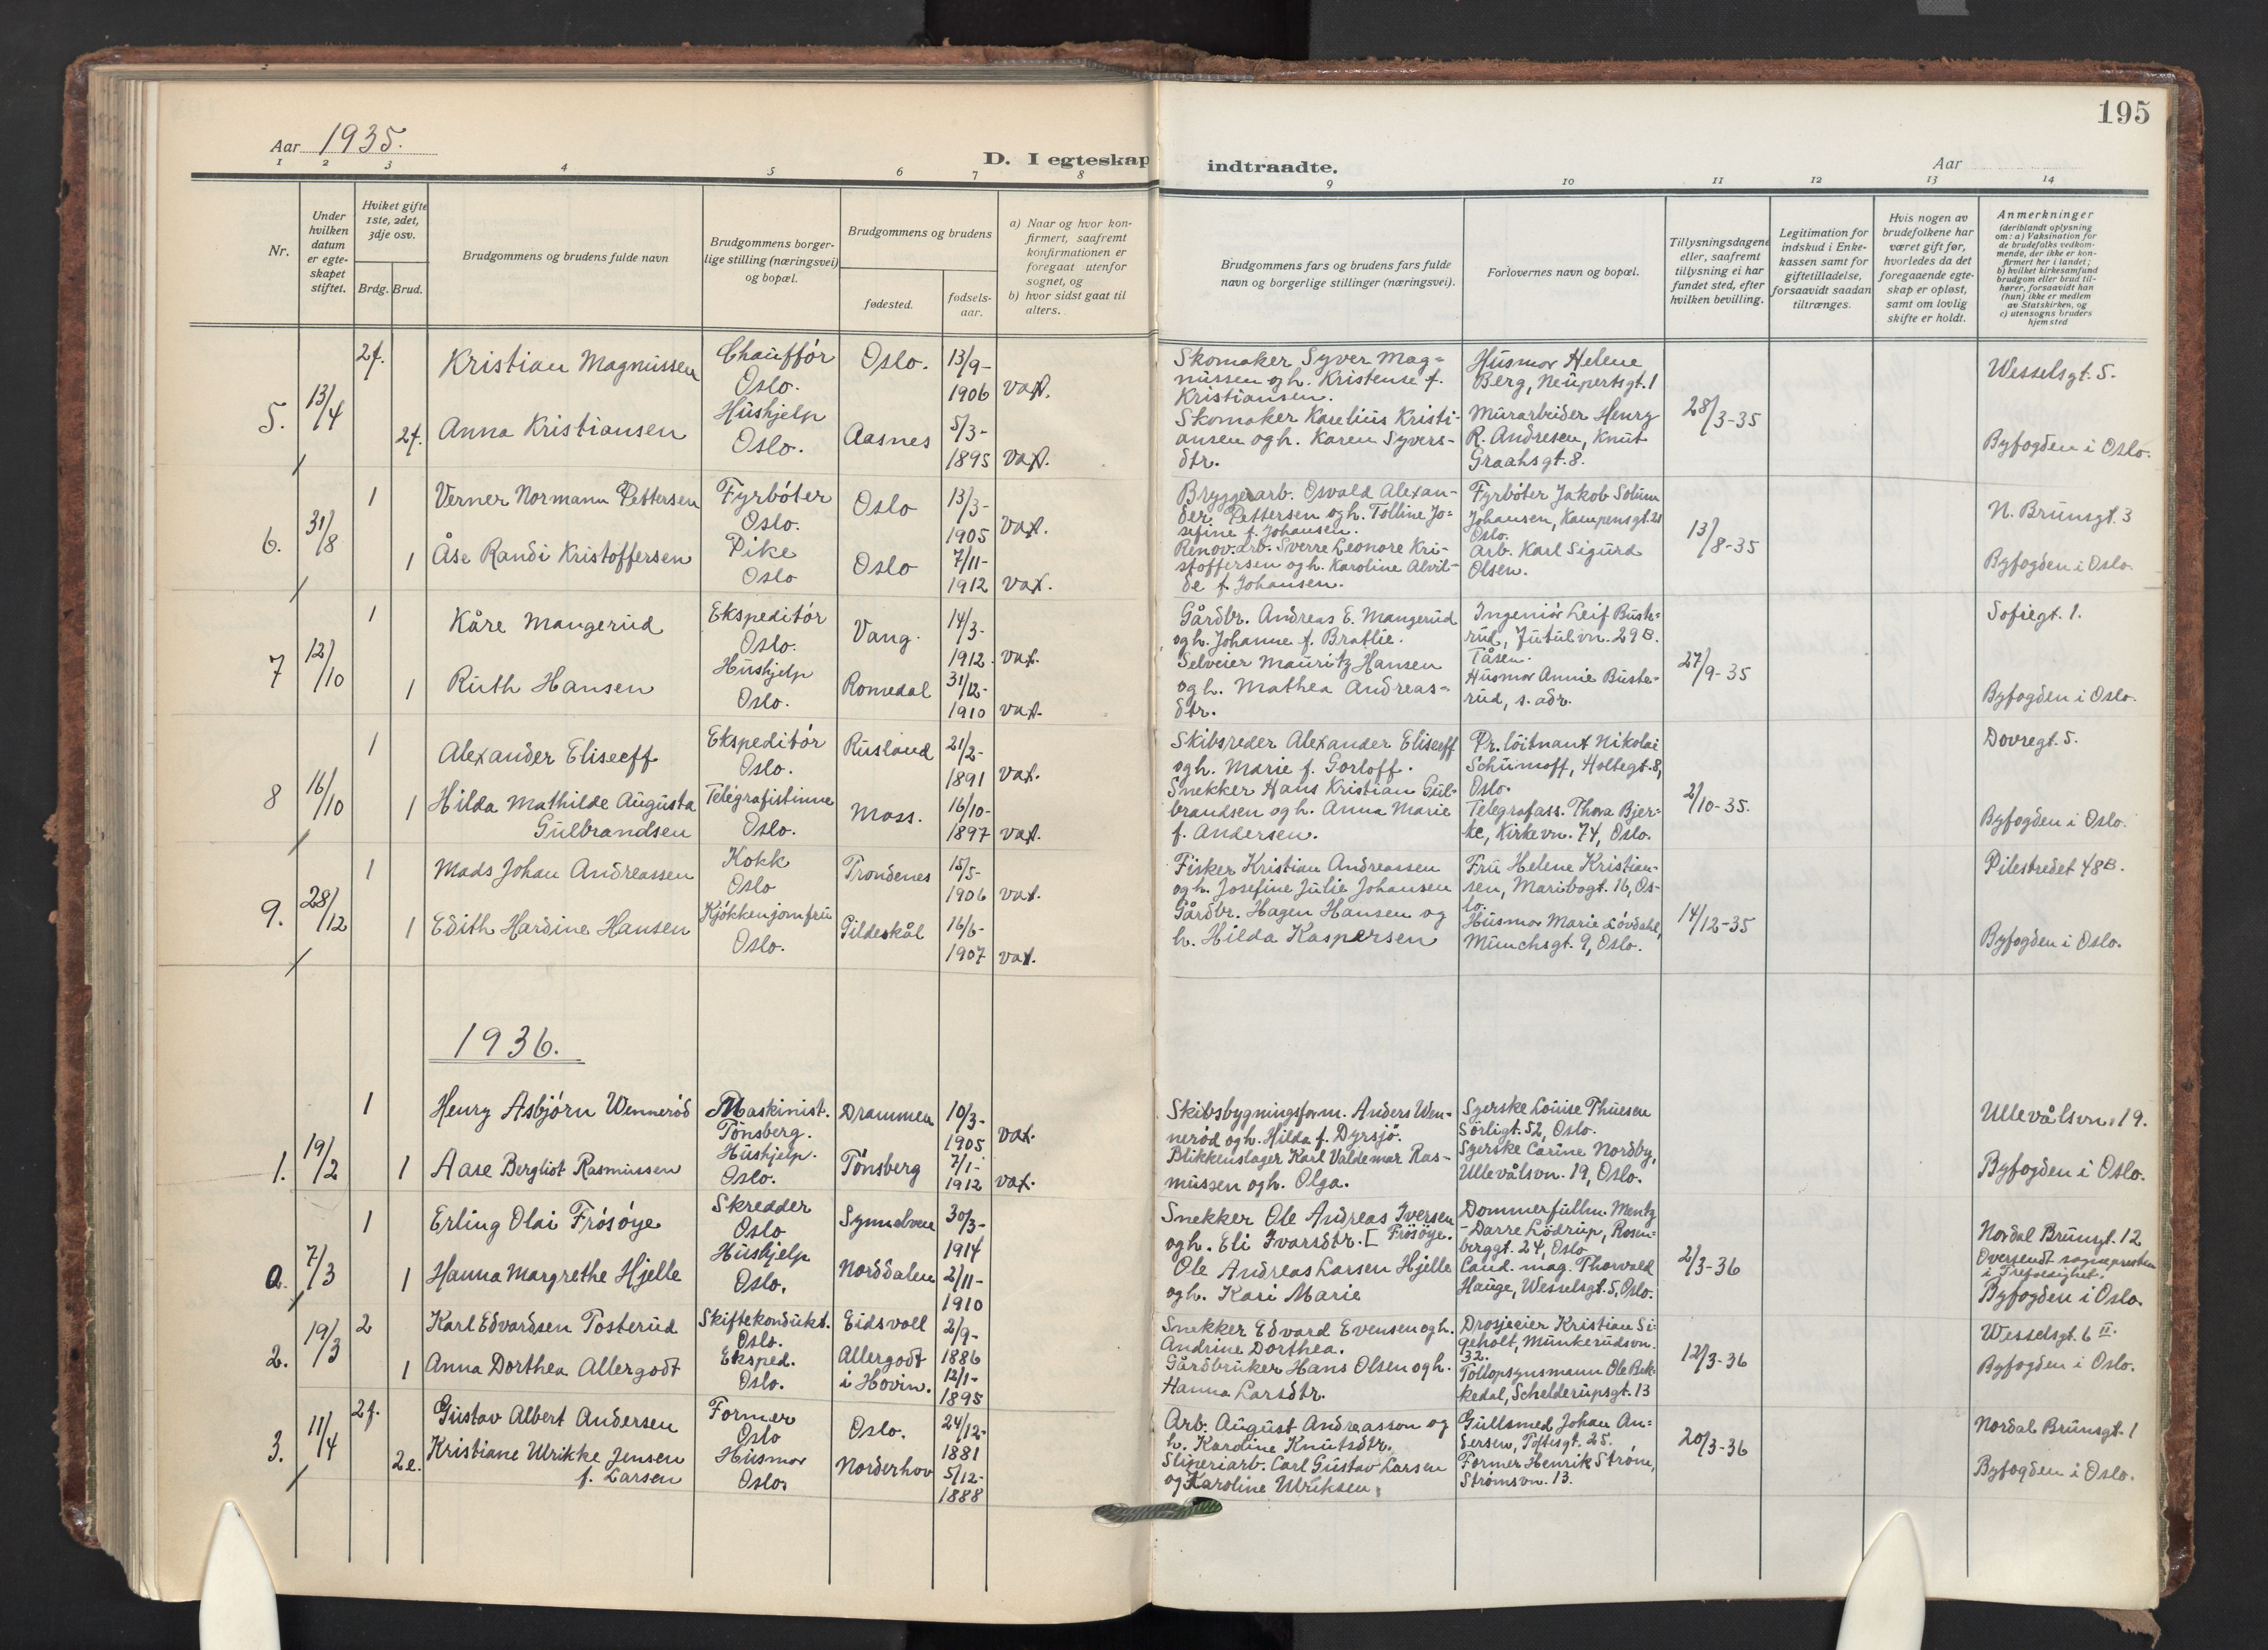 195
Aar 1935.
D. I egteskap indtraadte.
Aar
1 2 3 4 5 6 7 8 9 10 11 12 13 14
Nr.
Under
hvilken
datum
er egte-
skapet
stiftet.
Hviket gifte
1ste, 2det,
3dje osv.
Brdg. Brud.
Brudgommens og brudens fulde navn
Brudgommens borger-
lige stilling (næringsvei)
og bopæl.
Brudgommens og brudens
fødested.
fødsels-
aar.
a) Naar og hvor kon-
firmert, saafremt
konfirmationen er
foregaat utenfor
sognet, og
b) hvor sidst gaat til
alters.
Brudgommens fars og brudens fars fulde
navn og borgerlige stillinger (næringsvei).
Forlovernes navn og bopæl.
Tillysningsdagene
eller, saafremt
tillysning ei har
fundet sted, efter
hvilken bevilling.
Legitimation for
indskud i Enke-
kassen samt for
giftetilladelse,
forsaavidt saadan
tiltrænges.
Hvis nogen av
brudefolkene har
været gift før,
hvorledes da det
foregaaende egte-
skap er opløst,
samt om lovlig
skifte er holdt.
Anmerkninger
(deriblandt oplysning
om: a) Vaksination for
de brudefolks vedkom-
mende, der ikke er kon-
firmert her i landet;
b) hvilket kirkesamfund
brudgom eller brud til-
hører, forsaavidt han
(hun) ikke er medlem
av Statskirken, og
c) utensogns bruders
hjemsted
5. 13/4
2f. Kristian Magnussen
Chauffør
Oslo.
Oslo.
13/9-
1906
vax.
Skomaker Syver Mag-
nussen og h. Kristense f.
Kristiansen.
Husmor Helene
Berg, Neupertsgt. 1
28/3-35
Wesselsgt. 5.
2f. Anna Kristiansen
Hushjelp
Oslo.
Aasnes
5/3-
1895
vax.
Skomaker Karelius Kristi-
ansen og h. Karen Syvers-
dtr.
Murarbeider Henry
R. Andresen, Knut
Graahsgt. 8.
Byfogden i Oslo.
6. 31/8
1 Verner Normann Pettersen
Fyrbøter
Oslo.
Oslo
13/3-
1905
vax.
Bryggearb. Osvald Alexan-
der Pettersen og h. Tolline Jo-
sefine f. Johansen.
Fyrbøter Jakob Solum
Johansen, Kampensgt. 21
Oslo.
13/8-35
N. Brunsgt. 3
1 Åse Randi Kristoffersen
Pike
Oslo
Oslo
7/11-
1912
vax.
Renov. arb. Sverre Leonore Kri-
stoffersen og h. Karoline Alvil-
de f. Johansen.
Arb. Karl Sigurd
Olsen.
Byfogden i Oslo.
7 12/10
1 Kåre Mangerud
Ekspeditør
Oslo.
Vang.
14/3-
1912.
vax.
Gårdbr. Andreas E. Mangerud
og h. Johanne f. Bratlie.
Ingeniør Leif Buste-
rud, Jutulvn. 29B.
Tåsen.
27/9-35
Sofiegt. 1.
1 Ruth Hansen
Hushjelp
Oslo.
Romedal
31/12-
1910
vax.
Selveier Mauritz Hansen
og h. Mathea Andreas-
dtr.
Husmor Annie Buste-
rud, s. adr.
Byfogden i Oslo.
8 16/10
1 Alexander Eliseeff
Ekspeditør
Oslo.
Rusland
21/2-
1891
vax.
Skibsreder Alexander Eliseeff
og h. Marie f. Gorloff.
Pr. løitnant Nikolai
Schumoff, Holtegt. 8,
Oslo.
2/10-35.
Dovregt. 5.
1 Hilda Mathilde Augusta
Gulbrandsen
Telegrafistinne
Oslo.
Moss.
16/10-
1897
vax.
Snekker Hans Kristian Gul-
brandsen og h. Anna Marie
f. Andersen.
Telegrafass. Thora Bjer-
ke, Kirkevn. 74, Oslo.
Byfogden i Oslo.
9. 28/12
1 Mads Johan Andreassen
Kokk
Oslo
Trondenes
15/5-
1906
vax.
Fisker Kristian Andreassen
og h. Josefine Julie Johansen
Fru Helene Kristian-
sen, Maribogt. 16, Os-
lo.
14/12-35
Pilestredet 48B.
1 Edith Hardine Hansen
Kjøkkenjomfru
Oslo.
Gildeskål
16/6-
1907
vax.
Gårdbr. Hagen Hansen og
h. Hilda Kaspersen
Husmor Marie Løvdahl,
Munchsgt. 9, Oslo.
Byfogden i Oslo.
1936.
1. 19/2
1 Henry Asbjørn Wennerød
Maskinist.
Tønsberg.
Drammen
10/3-
1905
vax.
Skibsbygningsform. Anders Wen-
nerød og h. Hilda f. Dyrsjø.
Syerske Louise Thuesen
Sørligt. 52, Oslo.
Ullevålsvn. 19.
1 Aase Bergliot Rasmussen
Hushjelp.
Oslo.
Tønsberg
7/1-
1912
vax.
Blikkenslager Karl Valdemar Ras-
mussen og h. Olga.
Syerske Carine Nordby,
Ullevålsvn. 19, Oslo.
Byfogden i Oslo.
2. 7/3
1 Erling Olai Frøsøye
Skredder
Oslo
Synnelven
30/3-
1914
Snekker Ole Andreas Iversen
og h. Eli Ivarsdtr. [Frøsøye.
Dommerfullm. Mentz
-Darre Lødrup, Rosen-
berggt. 24, Oslo
2/3-36
Nordal Brunsgt. 12
Oversendt sognepresten
i Trefoldighet.
1 Hanna Margrethe Hjelle
Hushjelp
Oslo.
Norddalen
2/11-
1910
Ole Andreas Larsen Hjelle
og h. Kari Marie
Cand. mag. Thorvald
Hauge, Wesselsgt. 5, Oslo.
Byfogden i Oslo.
2. 19/3
2 Karl Edvardsen Tosterud
Skiftekondukt.
Oslo.
Eidsvoll
2/9-
1886
Snekker Edvard Evensen og h.
Andrine Dorthea.
Drosjeeier Kristian Si-
geholt, Munkerudsvn.
32.
12/3-36
Wesselsgt. 6 II.
1 Anna Dorthea Allergodt
Eksped.
Oslo.
Allergodt
i Hovin.
12/1-
1895
Gårdbruker Hans Olsen og h.
Hanna Larsdtr.
Tollopsynsmann Ole Bek-
kedal, Schelderupsgt. 13
Byfogden i Oslo.
3. 11/4
2f. Gustav Albert Andersen
Former
Oslo
Oslo.
24/12-
1881
Arb. August Andreasson og
h. Kardine Knutsdtr.
Gullsmed Johan An-
dersen, Toftesgt. 25.
20/3-36
Nordal Brunsgt. 1
2e. Kristiane Ulrikke Jensen
f. Larsen
Husmor
Oslo.
Norderhov
5/12-
1888
Sliperiarb. Carl Gustav Larsen
og Karoline Ulriksen.
Former Henrik Strøm,
Strømsvn. 13.
Byfogden i Oslo.